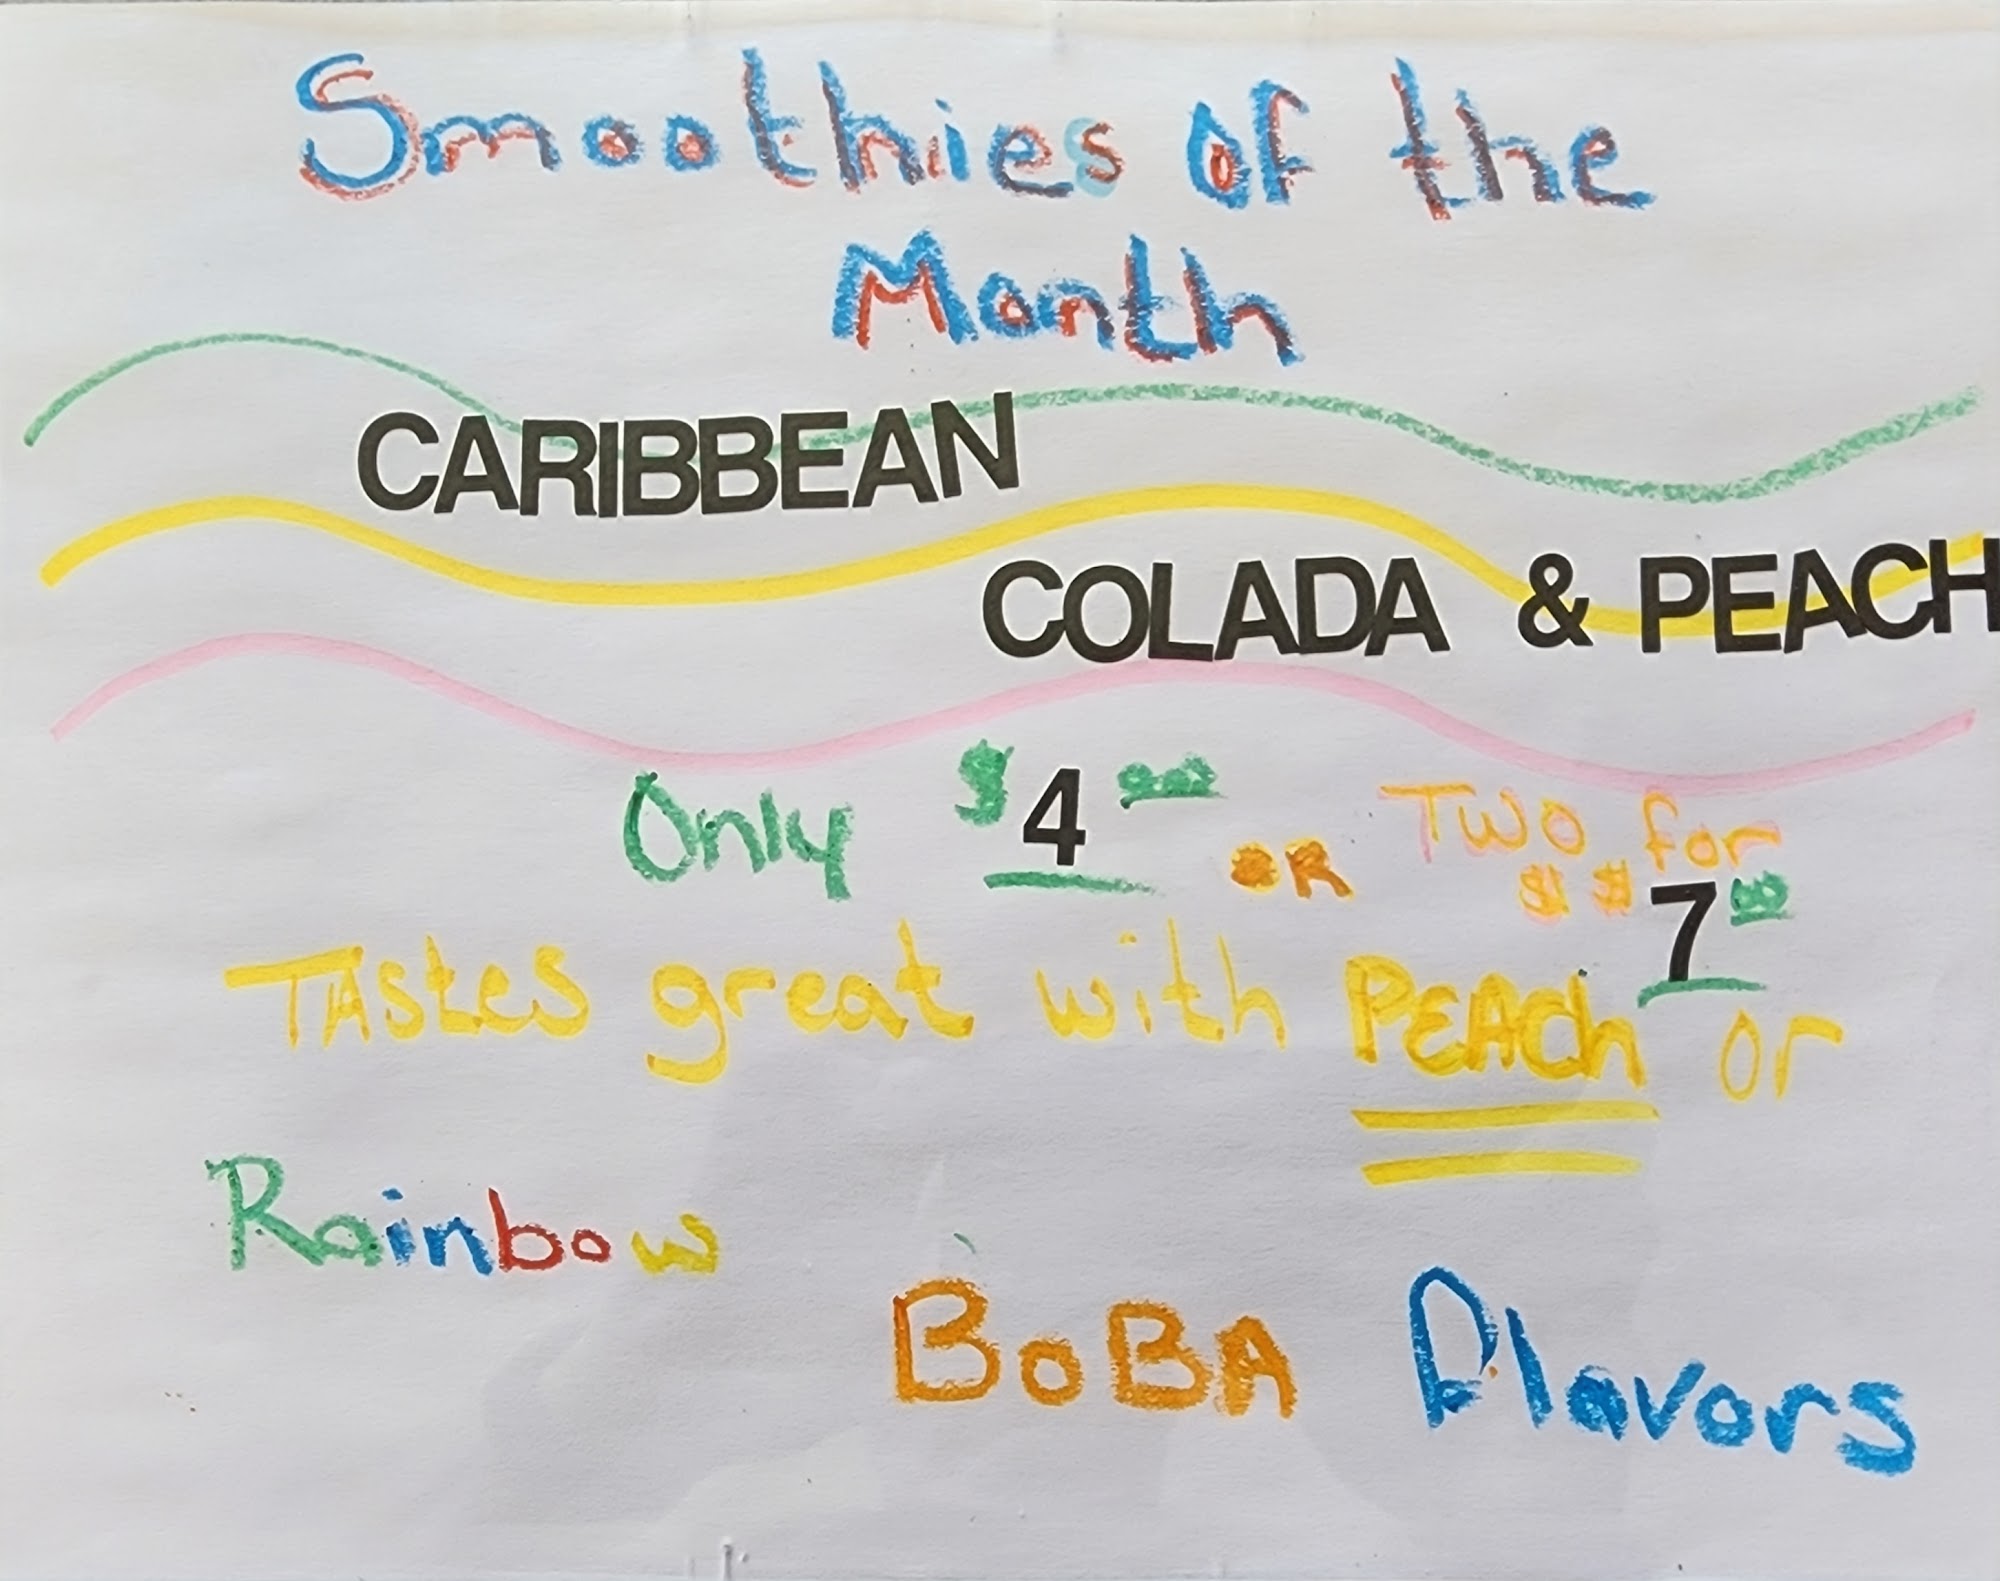 Smoothies of the
Month
CARIBBEAN
COLADA & PEACH
Only $4.00 OR Two for
$$7.00
TAstes great with PEACh or
Rainbow
BoBA Flavors